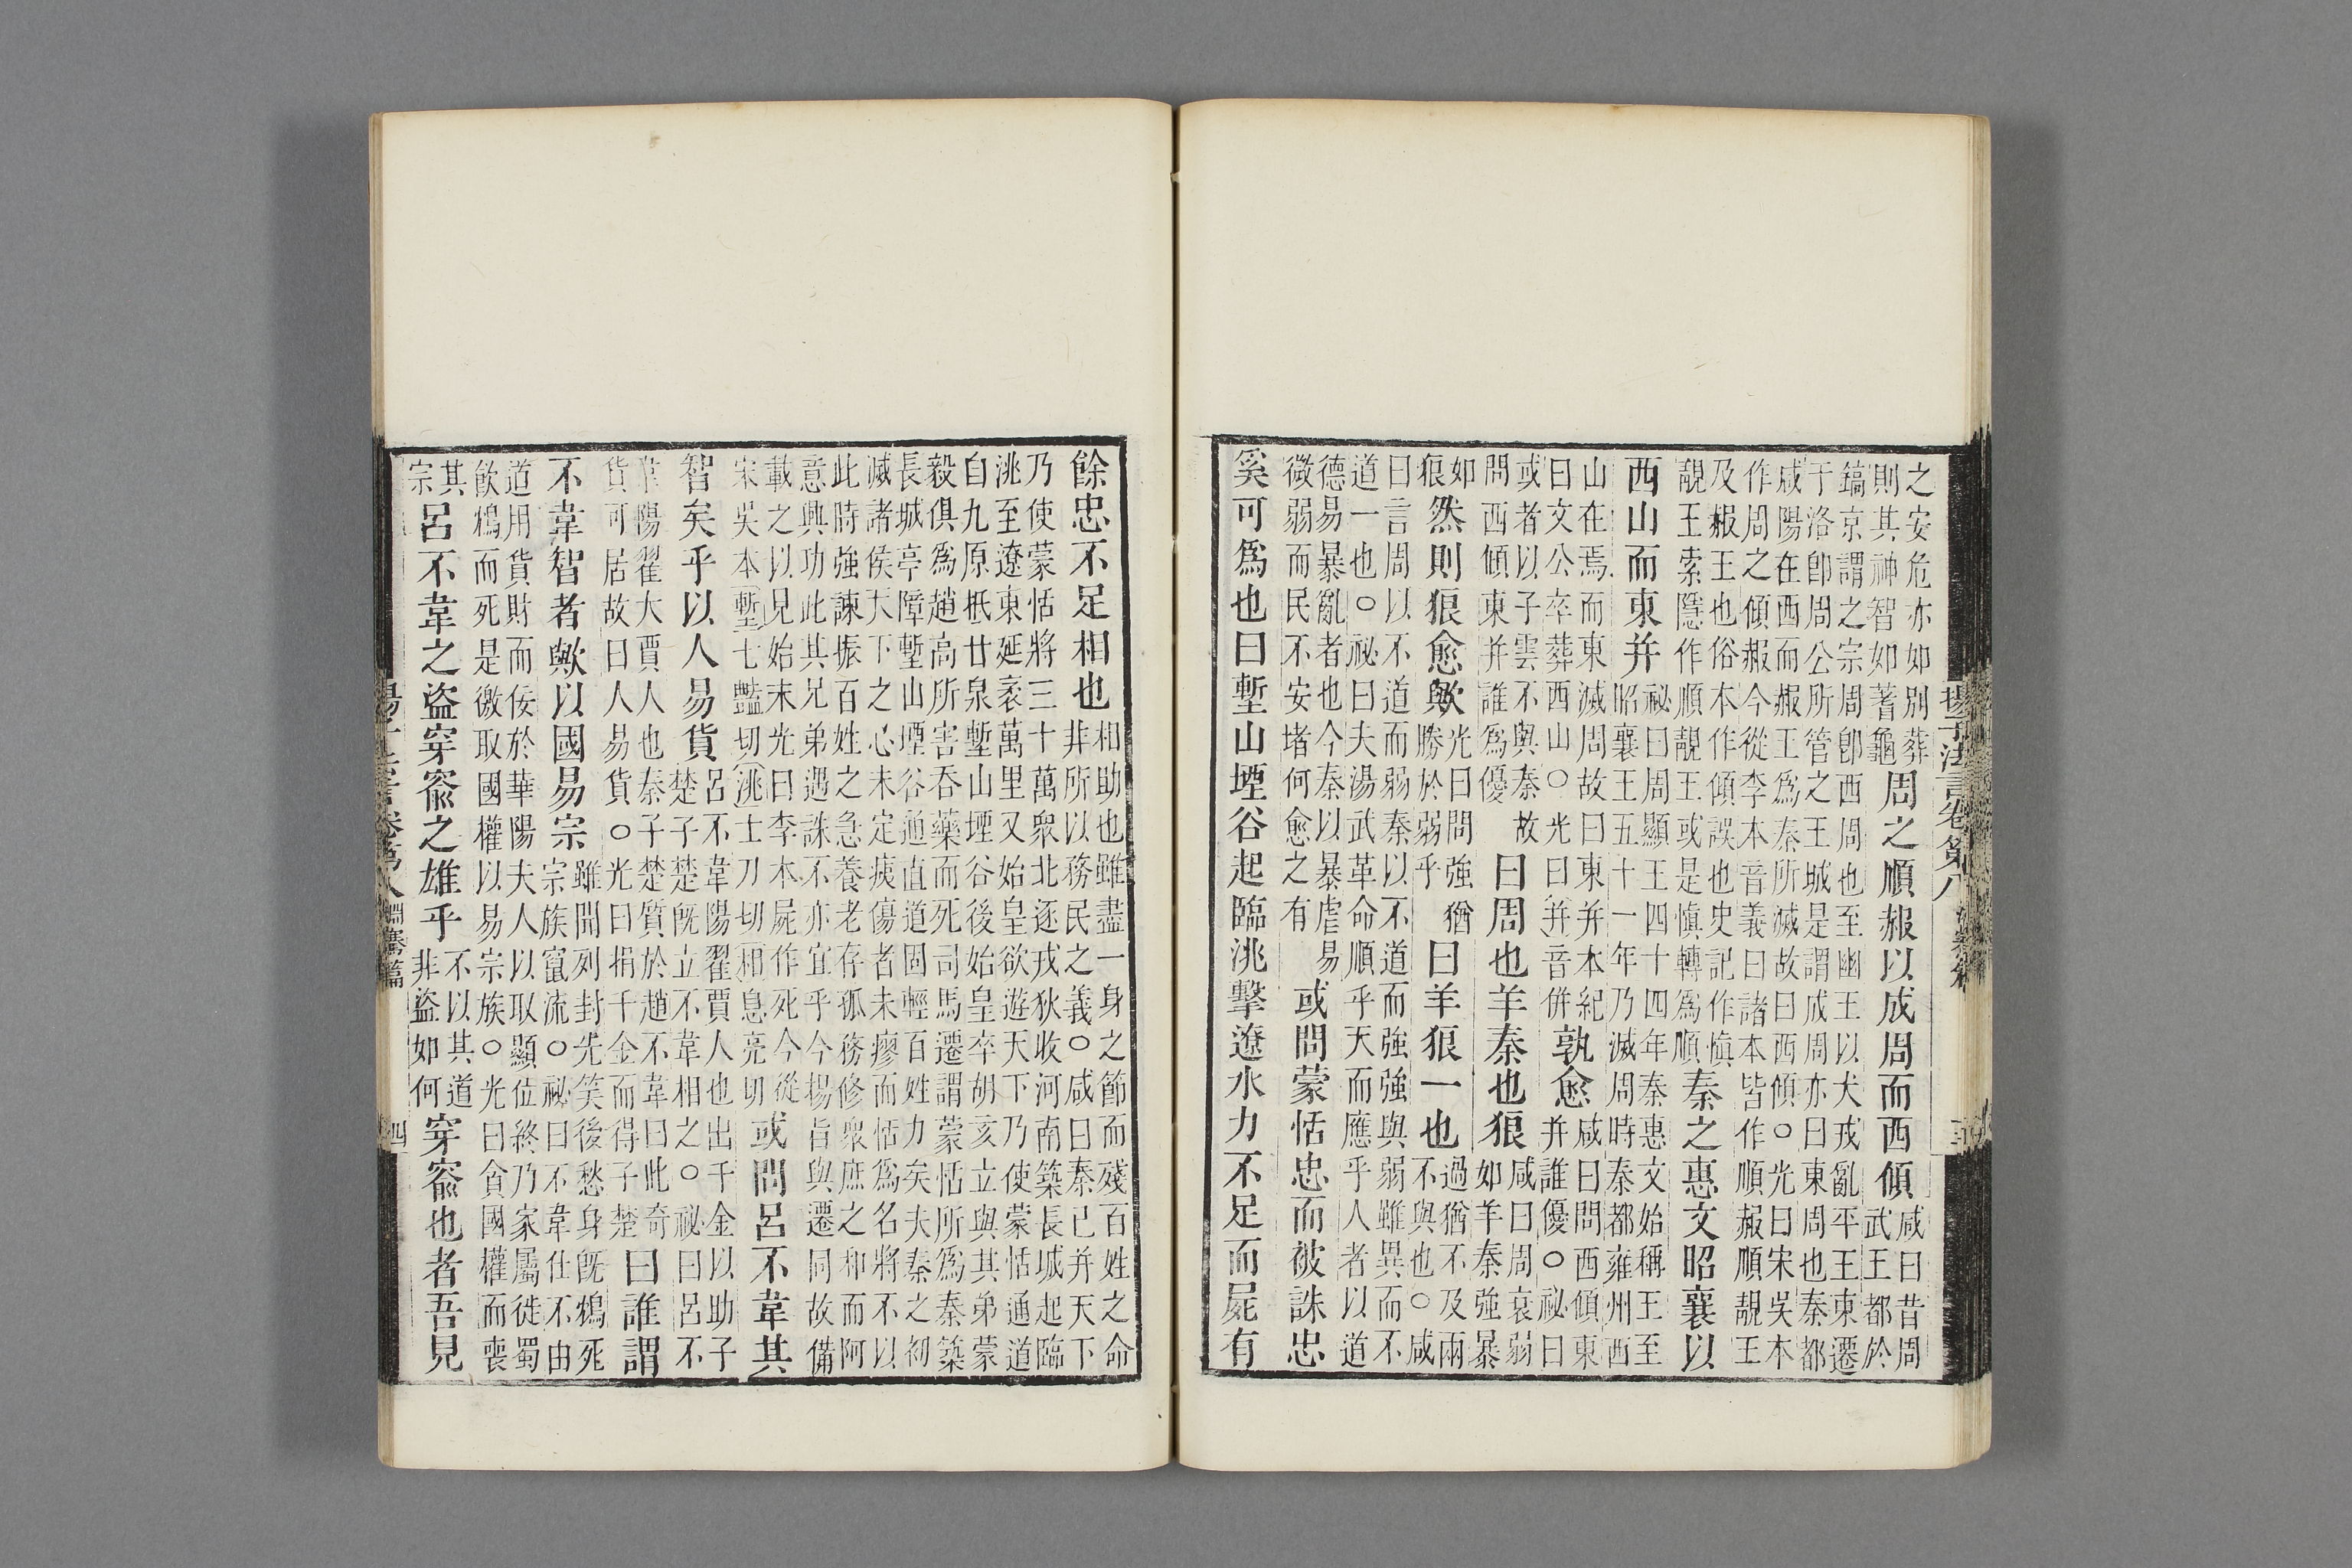 揚子法言卷第八
之安危亦如別葬則其神智如蓍龜周之順赧以成周而西傾咸曰昔周武王都於
鎬京謂之宗周卽西周也至幽王以犬戎亂平王東遷
于洛卽周公所管之王城是謂成周亦曰東周也秦都
咸陽在西而赧王爲秦所滅故曰西傾○光曰宋吳本
作周之傾赧今從李本音義曰諸本皆作順赧順靚王
及赧王也俗本作傾誤也史記作愼靚王索隱作順靚王或是愼轉爲順秦之惠文昭襄以
西山而東并祕曰周顯王四十四年秦惠文始稱王至昭襄王五十一年乃滅周時秦都雍州西
山在焉而東滅周故曰東并本紀曰文公卒葬西山○光曰并音併孰愈咸曰問西傾東并誰優○祕曰
或者以子雲不與秦故問西傾東并誰爲優曰周也羊秦也狼咸曰周衰弱如羊秦強暴
如狼然則狼愈歟光曰問強猶勝於弱乎曰羊狼一也過猶不及兩不與也○咸
曰言周以不道而弱秦以不道而強強與弱雖異而不
道一也○祕曰夫湯武革命順乎天而應乎人者以道
德易暴亂者也今秦以暴虐易微弱而民不安堵何愈之有或問蒙恬忠而被誅忠
奚可爲也曰塹山堙谷起臨洮擊遼水力不足而屍有
餘忠不足相也相助也雖盡一身之節而殘百姓之命非所以務民之義○咸曰秦已并天下
乃使蒙恬將三十萬衆北逐戎狄收河南築長城起臨
洮至遼東延袤萬里又始皇欲遊天下乃使蒙恬通道
自九原抵甘泉塹山堙谷後始皇卒胡亥立與其弟蒙
毅俱爲趙高所害吞藥而死司馬遷謂蒙恬所爲秦築
長城亭障塹山堙谷通直道固輕百姓力矣夫秦之初
滅諸侯天下之心未定痍傷者未瘳而恬爲名將不以
此時強諫振百姓之急養老存孤務修衆庶之和而阿
意興功此其兄弟遇誅不亦宜乎今揚旨與遷同故備
載之以見始末光曰李本屍作死今從宋吳本塹七豔切洮士刀切相息亮切或問呂不韋其
智矣乎以人易貨呂不韋陽翟賈人也出千金以助子楚子楚既立不韋相之○祕曰呂不
韋陽翟大賈人也秦子楚質於趙不韋曰此奇貨可居故曰人易貨○光曰捐千金而得子楚曰誰謂
不韋智者歟以國易宗雖開列封先笑後愁身既鴆死宗族竄流○祕曰不韋仕不由
道用貨財而佞於華陽夫人以取顯位終乃家屬徙蜀
飲鴆而死是徼取國權以易宗族○光曰貪國權而喪
其宗呂不韋之盜穿窬之雄乎不以其道非盜如何穿窬也者吾見
淵騫篇
四